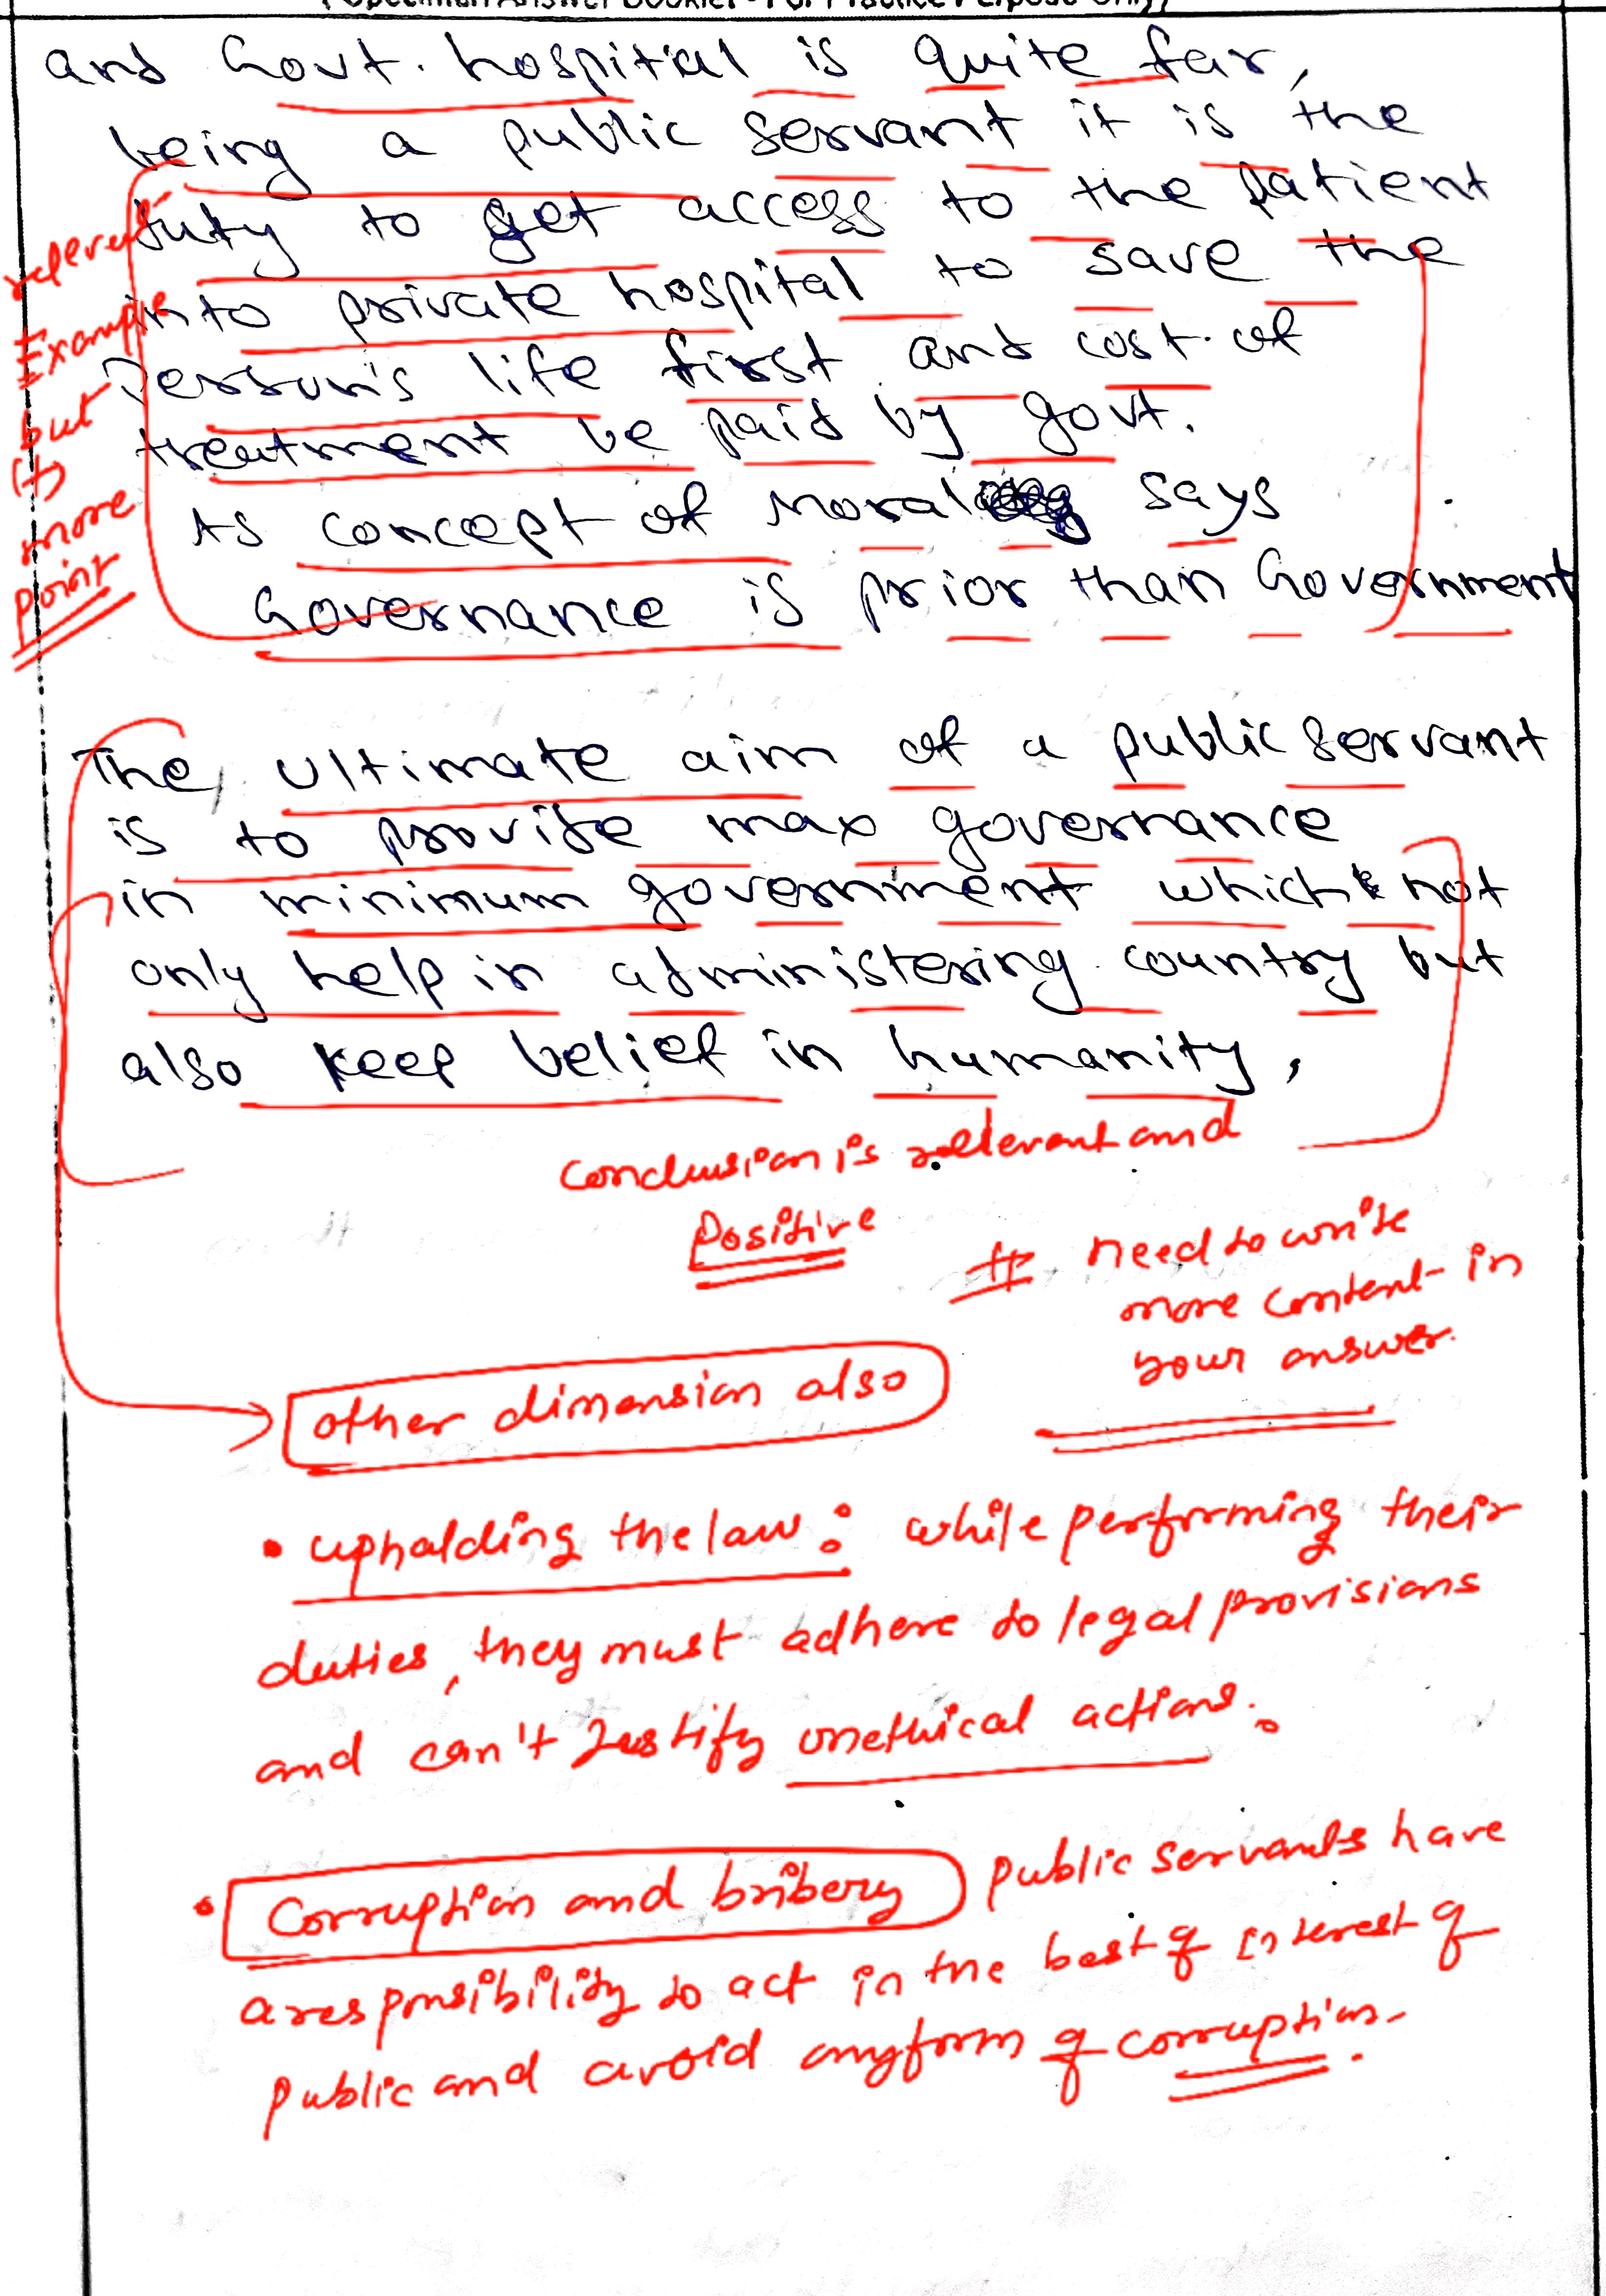 ( Specimen Answer Booklet - For Practice Purpose Only)
and Govt. hospital is quite far,
being a public servant it is the
duty to get access to the patient
into private hospital to save the
Person's life first and cost of
treatment be paid by govt.
As concept of moral says
Governance is prior than Government
relevent
Example
but
(+)
more
point
The, ultimate aim of a public servant
is to provide max governance
in minimum government which not
only help in administering country but
also keep belief in humanity,
Conclusion is relevant and
Positive
# need to write
more content in
your answer.
other dimension also
• upholding the law: while performing their
duties, they must adhere to legal provisions
and can't Justify unethical actions.
• Corruption and bribery public servants have
a responsibility to act in the best of interest of
public and avoid any form of corruption.